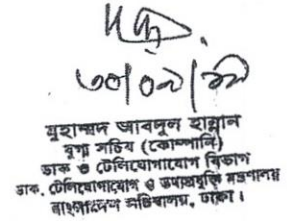 মুহাম্মদ আবদুল হান্নান
যুগ্ম সচিব (কোম্পানি)
ডাক ও টেলিযোগাযোগ বিভাগ
ডাক, টেলিযোগাযোগ ও তথ্যপ্রযুক্তি মন্ত্রণালয়
বাংলাদেশ সচিবালয়, ঢাকা।